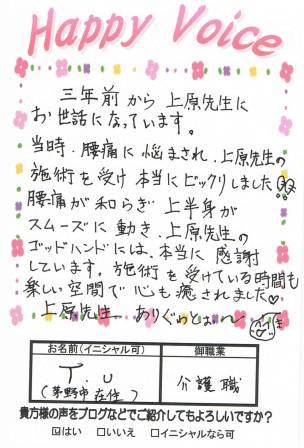 Happy Voice
三年前から上原先生に
お世話になっています。
当時、腰痛に悩まされ、上原先生の
施術を受け本当にビックリしました
腰痛が和らぎ上半身が
スムーズに動き、上原先生の
ゴッドハンドには、本当に感謝
しています。施術を受けている時間も
楽しい空間で心も癒されました♡
上原先生 ありがとォ〜
お名前(イニシャル可)
御職業
T.U
(茅野市在住)
介護職
貴方様の声をブログなどでご紹介してもよろしいですか?
☑はい □いいえ □イニシャルなら可